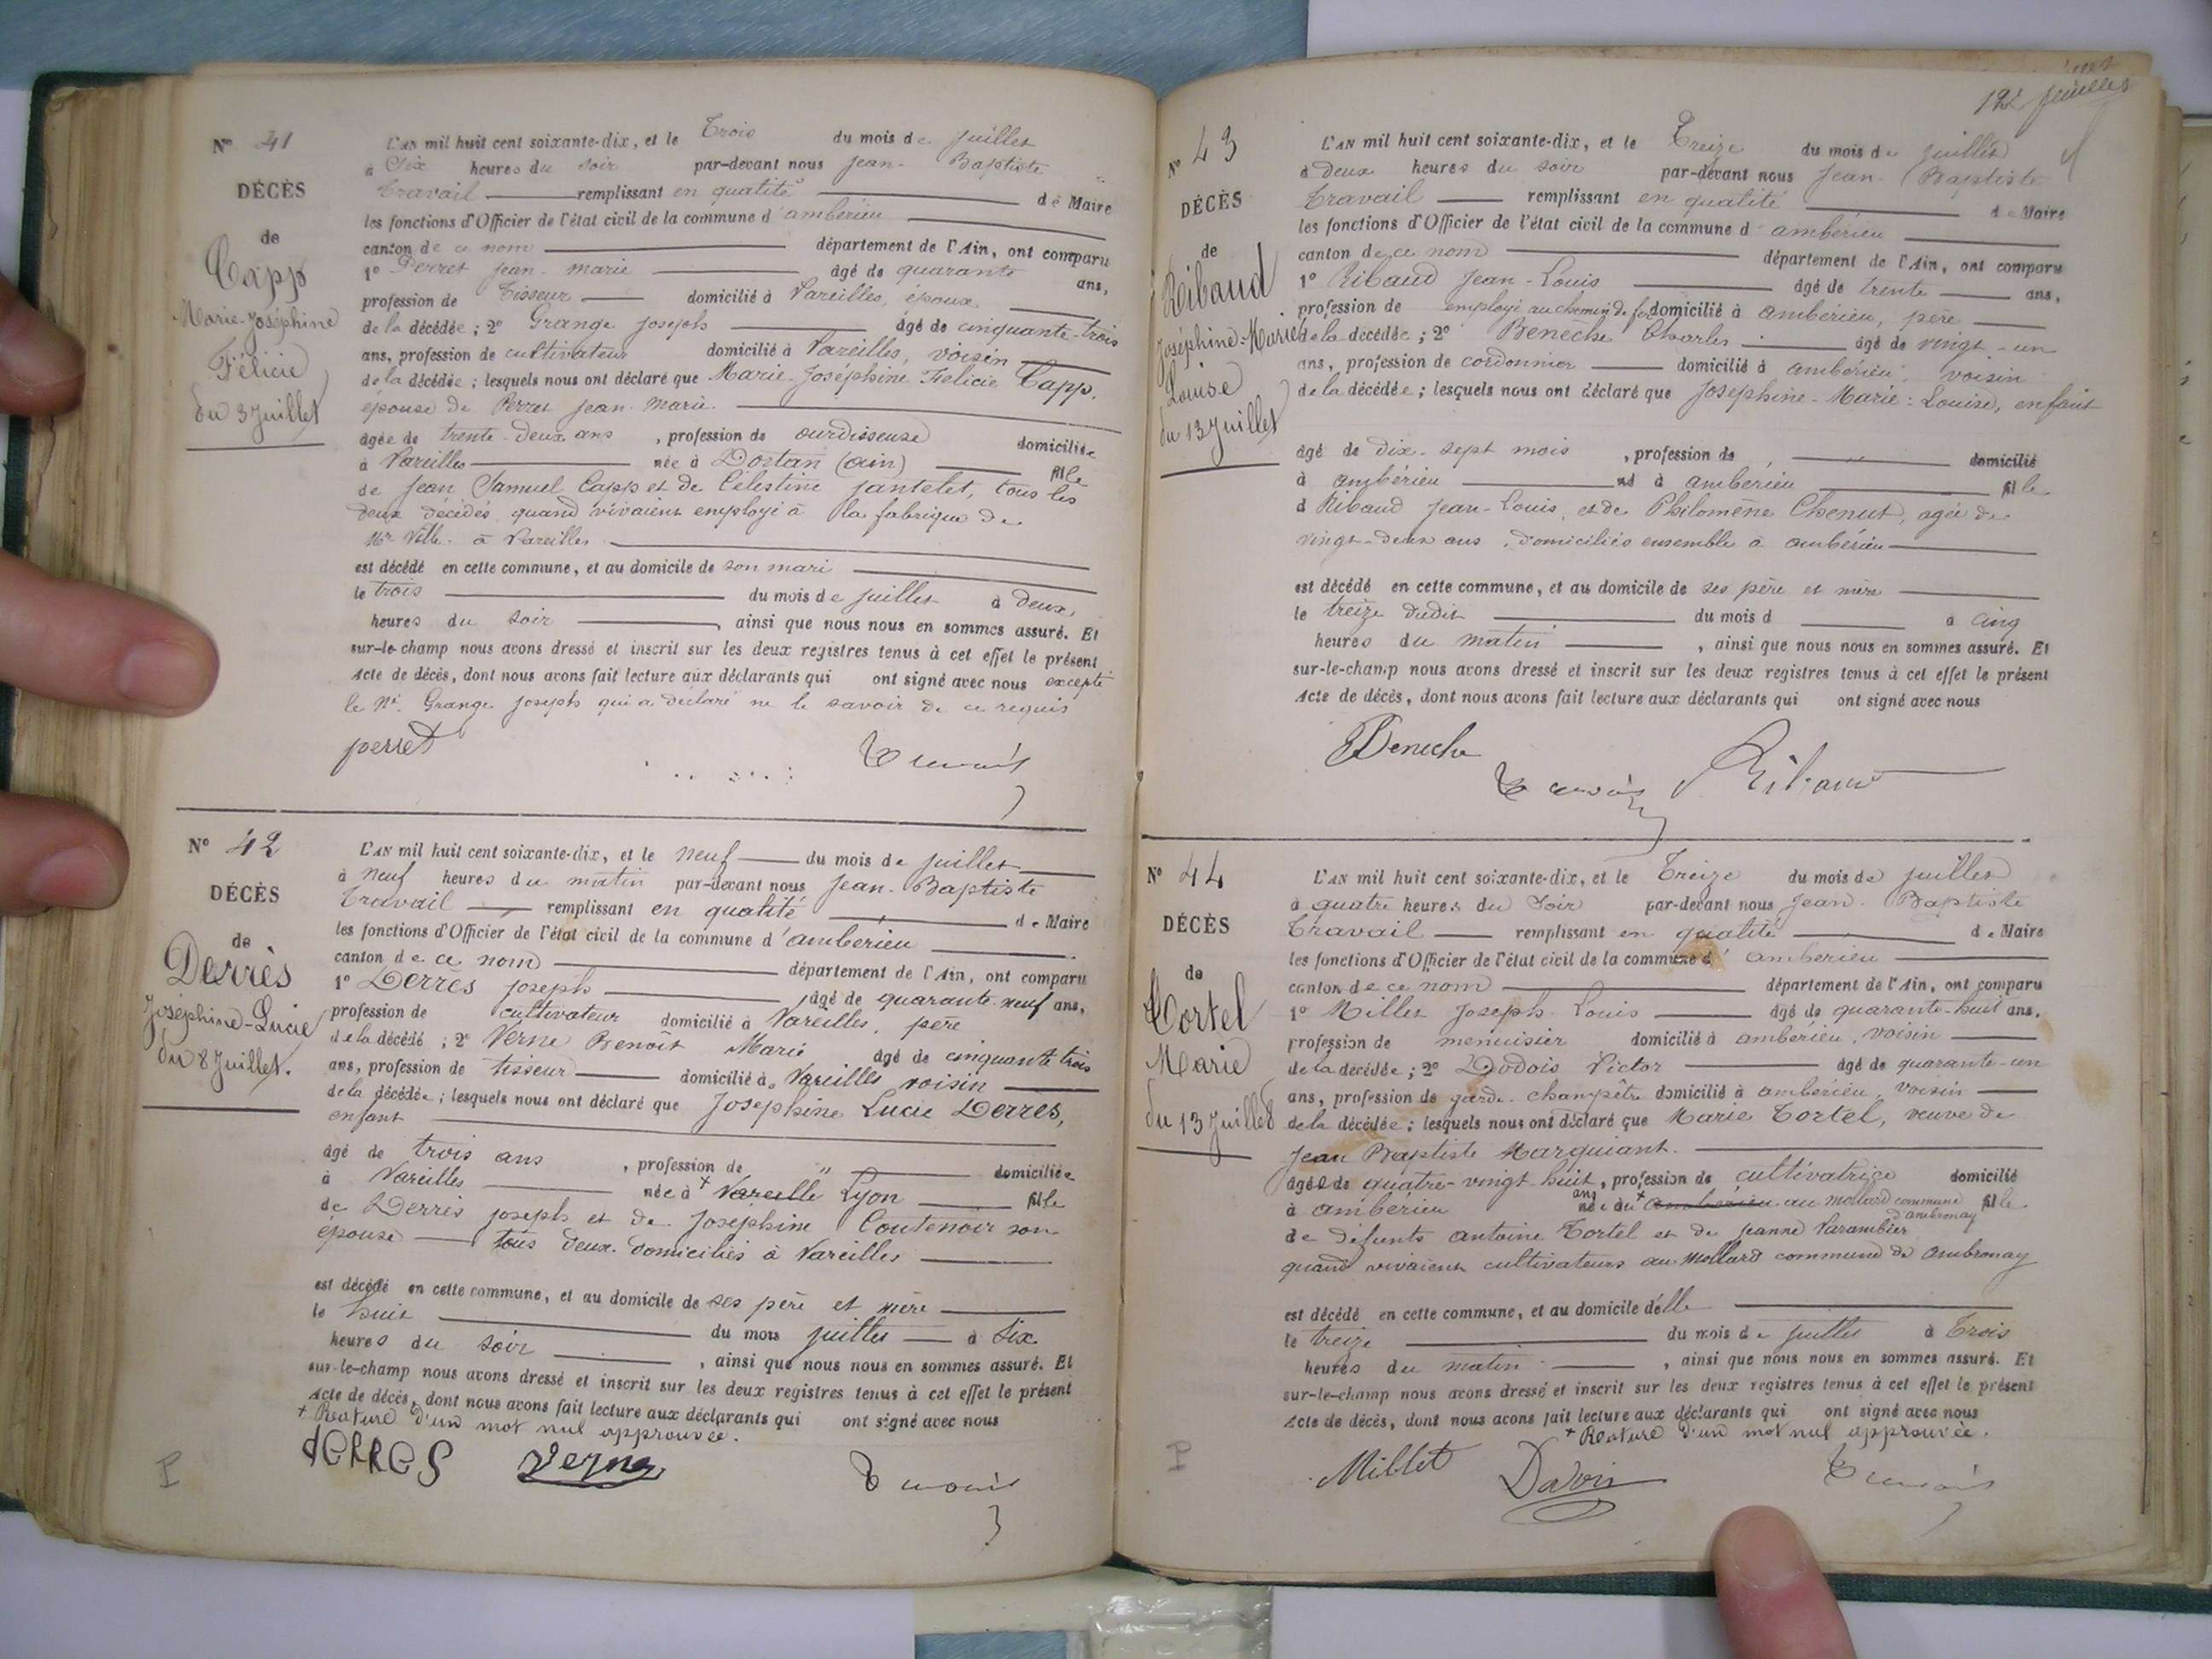 N° 41
DÉCÈS
de
Capp
Marie-Joséphine
Félicie
du 3 Juillet
L'AN mil huit cent soixante-dix, et le Trois du mois de juillet
à Six heures du soir par-devant nous Jean-Baptiste
Travail remplissant en qualité de Maire
les fonctions d'Officier de l'état civil de la commune d'ambérieu
canton de ce nom département de l'Ain, ont comparu
1° Perret Jean-marie âgé de quarante ans,
profession de Tisseur domicilié à Vareilles, époux
de la décédée ; 2° Grange Joseph âgé de cinquante-trois
ans, profession de cultivateur domicilié à Vareilles, voisin
de la décédée ; lesquels nous ont déclaré que Marie-Joséphine Félicie Capp,
épouse de Perret Jean-Marie.
âgée de trente-deux ans, profession de ourdisseuse domiciliée
à Vareilles née à Dortan (ain) fille
de Jean Samuel Capp et de Célestine Jantelet, tous les
deux décédés quand vivaient employé à la fabrique de
Mr Ville à Vareilles
est décédé en cette commune, et au domicile de son mari
le trois du mois de juillet à deux
heures du soir, ainsi que nous nous en sommes assuré. Et
sur-le-champ nous avons dressé et inscrit sur les deux registres tenus à cet effet le présent
Acte de décès, dont nous avons fait lecture aux déclarants qui ont signé avec nous excepté
le Né Grange Joseph qui a déclaré ne le savoir de ce requis
perret Travail
N° 42
DÉCÈS
de
Derrès
Joséphine-Lucie
du 8 Juillet.
L'AN mil huit cent soixante-dix, et le neuf du mois de juillet
à neuf heures du matin par-devant nous Jean-Baptiste
Travail remplissant en qualité de Maire
les fonctions d'Officier de l'état civil de la commune d'ambérieu
canton de ce nom département de l'Ain, ont comparu
1° Derrès Joseph âgé de quarante-neuf ans,
profession de cultivateur domicilié à Vareilles, père
de la décédé ; 2° Verne Benoît Marie âgé de cinquante trois
ans, profession de tisseur domicilié à Vareilles voisin
de la décédée ; lesquels nous ont déclaré que Joséphine Lucie Derres,
enfant
âgé de trois ans, profession de " domiciliée
à Vareilles née à + Vareille Lyon fille
de Derrès Joseph et de Joséphine Coutenoir son
épouse tous deux domiciliés à Vareilles
est décédé en cette commune, et au domicile de ses père et mère
le huit du mois juillet à Six
heures du soir, ainsi que nous nous en sommes assuré. Et
sur-le-champ nous avons dressé et inscrit sur les deux registres tenus à cet effet le présent
Acte de décès, dont nous avons fait lecture aux déclarants qui ont signé avec nous
+ Rature d'un mot nul approuvée.
derres Verne Travail
122 feuillet
N° 43
DÉCÈS
de
Ribaud
Joséphine-Marie
Louise
du 13 Juillet
L'AN mil huit cent soixante-dix, et le Treize du mois de juillet
à deux heures du soir par-devant nous Jean-Baptiste
Travail remplissant en qualité de Maire
les fonctions d'Officier de l'état civil de la commune d'ambérieu
canton de ce nom département de l'Ain, ont comparu
1° Ribaud Jean-Louis âgé de trente ans,
profession de employé au chemin de fer domicilié à ambérieu, père
de la décédée ; 2° Beneche Charles âgé de vingt-un
ans, profession de cordonnier domicilié à ambérieu, voisin
de la décédée ; lesquels nous ont déclaré que Joséphine-Marie-Louise, enfant
âgé de dix-sept mois, profession de domicilié
à ambérieu né à ambérieu fille
d Ribaud Jean-Louis, et de Philomène Chenut, agée de
vingt-deux ans, domiciliés ensemble à ambérieu
est décédé en cette commune, et au domicile de ses père et mère
le treize dudit du mois d à cinq
heures du matin, ainsi que nous nous en sommes assuré. Et
sur-le-champ nous avons dressé et inscrit sur les deux registres tenus à cet effet le présent
Acte de décès, dont nous avons fait lecture aux déclarants qui ont signé avec nous
Beneche Travail Ribaud
N° 44
DÉCÈS
de
Tortel
Marie
du 13 Juillet
L'AN mil huit cent soixante-dix, et le Treize du mois de juillet
à quatre heures du Soir par-devant nous Jean-Baptiste
Travail remplissant en qualité de Maire
les fonctions d'Officier de l'état civil de la commune d'ambérieu
canton de ce nom département de l'Ain, ont comparu
1° Millet Joseph Louis âgé de quarante-huit ans,
profession de menuisier domicilié à ambérieu, voisin
de la décédée ; 2° Dodois Victor âgé de quarante-un
ans, profession de garde-champêtre domicilié à ambérieu, voisin
de la décédée ; lesquels nous ont déclaré que Marie Tortel, veuve de
Jean Baptiste Marguiant.
âgée de quatre-vingt-huit ans, profession de cultivatrice domicilié
à ambérieu née au + amberieu au mollard commune d'ambronay fille
de défunts Antoine Tortel et de Jeanne Varambier
quand vivaient cultivateurs au Mollard commune de Ambronay
est décédé en cette commune, et au domicile d'elle
le treize du mois de juillet à Trois
heures du matin, ainsi que nous nous en sommes assuré. Et
sur-le-champ nous avons dressé et inscrit sur les deux registres tenus à cet effet le présent
Acte de décès, dont nous avons fait lecture aux déclarants qui ont signé avec nous
+ Rature d'un mot nul approuvée.
Millet Davoir Travail